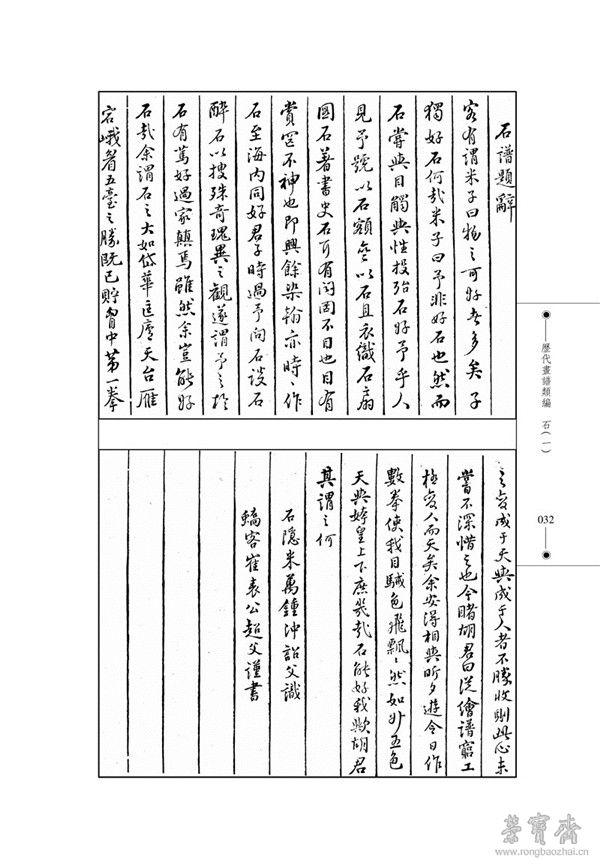 石譜題辭
客有謂米子曰物之可好者多矣子
獨好石何哉米子曰予非好石也然而
石嘗與目觸與性投殆石好予乎人
見予號以石額齋以石且衣織石扇
圖石著書史石可有閃固不目也目有
賞罔不神也即興餘染翰亦時時作
石至海內同好君子時過予向石談石
醉石以搜殊奇瑰異之觀遂謂予之於
石有篤好過家顛焉雖然余豈能好
石哉余謂石之大如岱華匡廬天台雁
宕峨眉五臺之勝既已貯胷中第一拳
之奇成于天與成于人者不勝收則此心未
嘗不深惜之也今睹胡君曰從繪譜窮工
極變人而天矣余安得相與昕夕遊令日作
數拳使我目駴色飛飄飄然如外五色
天與媧皇上下庶幾哉石能好我歟胡君
其謂之何
石隱米萬鍾沖詔父識
蟂客崔表公超父謹書
歷代畫譜類編 石(一)
032
榮寶齋
www.rongbaozhai.cn